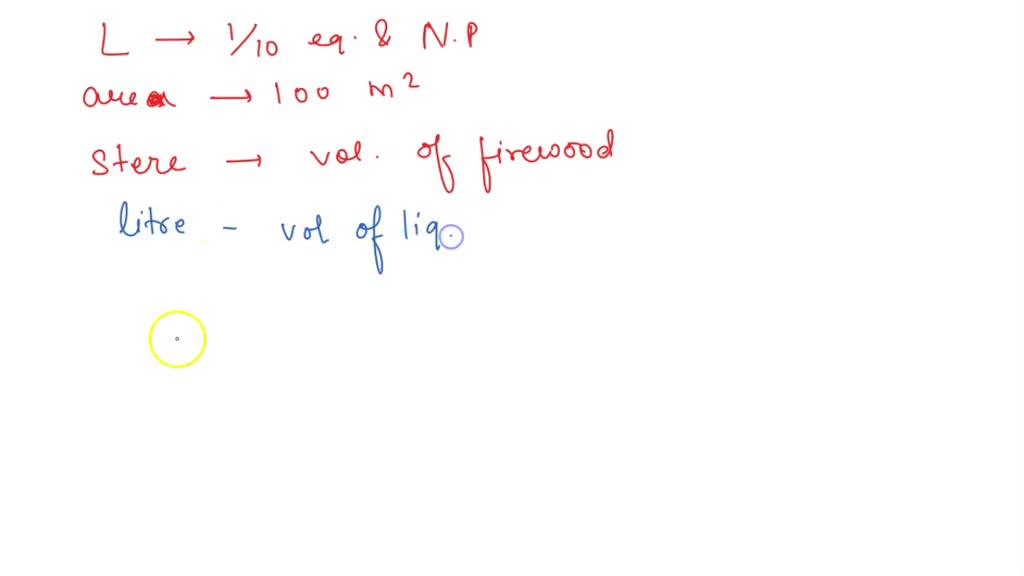 L → 1/10 eq. & N.P
are → 100 m²
stere → vol. of firewood
litre - vol of liq